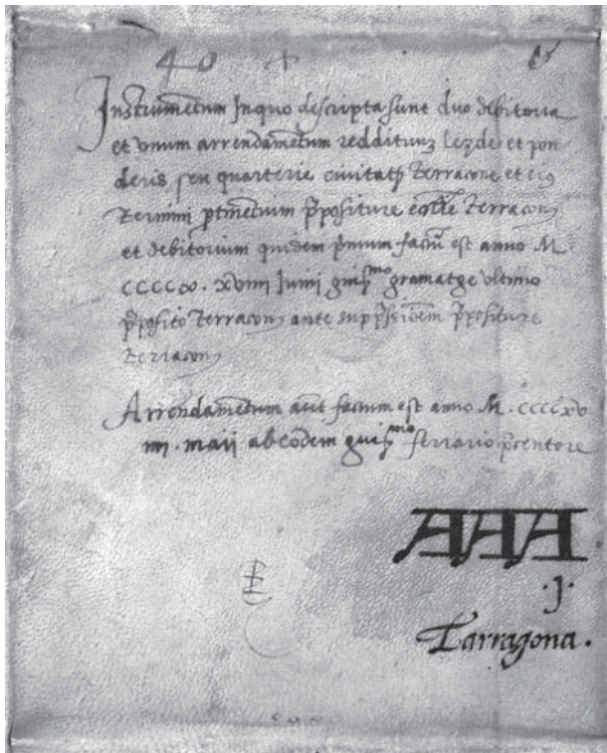 40 +
Instrumentum in quo descripta sunt duo debitoria
et unum arrendamentum reddituum lezde et pon
deris seu quarterie civitatis Terracone et eius
termini ptinentium ppositure ecclie Terracon
et debitorium quidem pmum factum est anno M
CCCCX. XVIIII Junii guillmo gramatge ultimo
pposito Terracon ante suppssionem ppositure
Terracon
Arrendamentum aut factum est anno M. CCCCXV
IIII. maii ab eodem guillmo ferrario pcentore
AAA
.J.
Tarragona.